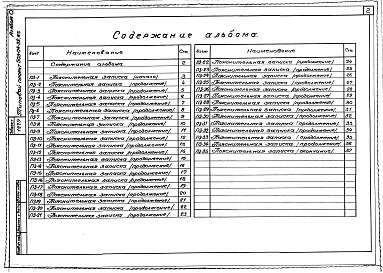 Альбом 0
2
Содержание альбома.
Лист Наименование Стр.
Содержание альбома 2
ПЗ-1 Пояснительная записка /начало/ 3
ПЗ-2 Пояснительная записка /продолжение/ 4
ПЗ-3 Пояснительная записка /продолжение/ 5
ПЗ-4 Пояснительная записка /продолжение/ 6
ПЗ-5 Пояснительная записка /продолжение/ 7
ПЗ-6 Пояснительная записка /продолжение/ 8
ПЗ-7 Пояснительная записка /продолжение/ 9
ПЗ-8 Пояснительная записка /продолжение/ 10
ПЗ-9 Пояснительная записка /продолжение/ 11
ПЗ-10 Пояснительная записка /продолжение/ 12
ПЗ-11 Пояснительная записка /продолжение/ 13
ПЗ-12 Пояснительная записка /продолжение/ 14
ПЗ-13 Пояснительная записка /продолжение/ 15
ПЗ-14 Пояснительная записка /продолжение/ 16
ПЗ-15 Пояснительная записка /продолжение/ 17
ПЗ-16 Пояснительная записка /продолжение/ 18
ПЗ-17 Пояснительная записка /продолжение/ 19
ПЗ-18 Пояснительная записка /продолжение/ 20
ПЗ-19 Пояснительная записка /продолжение/ 21
ПЗ-20 Пояснительная записка /продолжение/ 22
ПЗ-21 Пояснительная записка /продолжение/ 23
Лист Наименование Стр.
ПЗ-22 Пояснительная записка /продолжение/ 24
ПЗ-23 Пояснительная записка /продолжение/ 25
ПЗ-24 Пояснительная записка /продолжение/ 26
ПЗ-25 Пояснительная записка /продолжение/ 27
ПЗ-26 Пояснительная записка /продолжение/ 28
ПЗ-27 Пояснительная записка /продолжение/ 29
ПЗ-28 Пояснительная записка /продолжение/ 30
ПЗ-29 Пояснительная записка /продолжение/ 31
ПЗ-30 Пояснительная записка /продолжение/ 32
ПЗ-31 Пояснительная записка /продолжение/ 33
ПЗ-32 Пояснительная записка /продолжение/ 34
ПЗ-33 Пояснительная записка /продолжение/ 35
ПЗ-34 Пояснительная записка /продолжение/ 36
ПЗ-35 Пояснительная записка /окончание/ 37